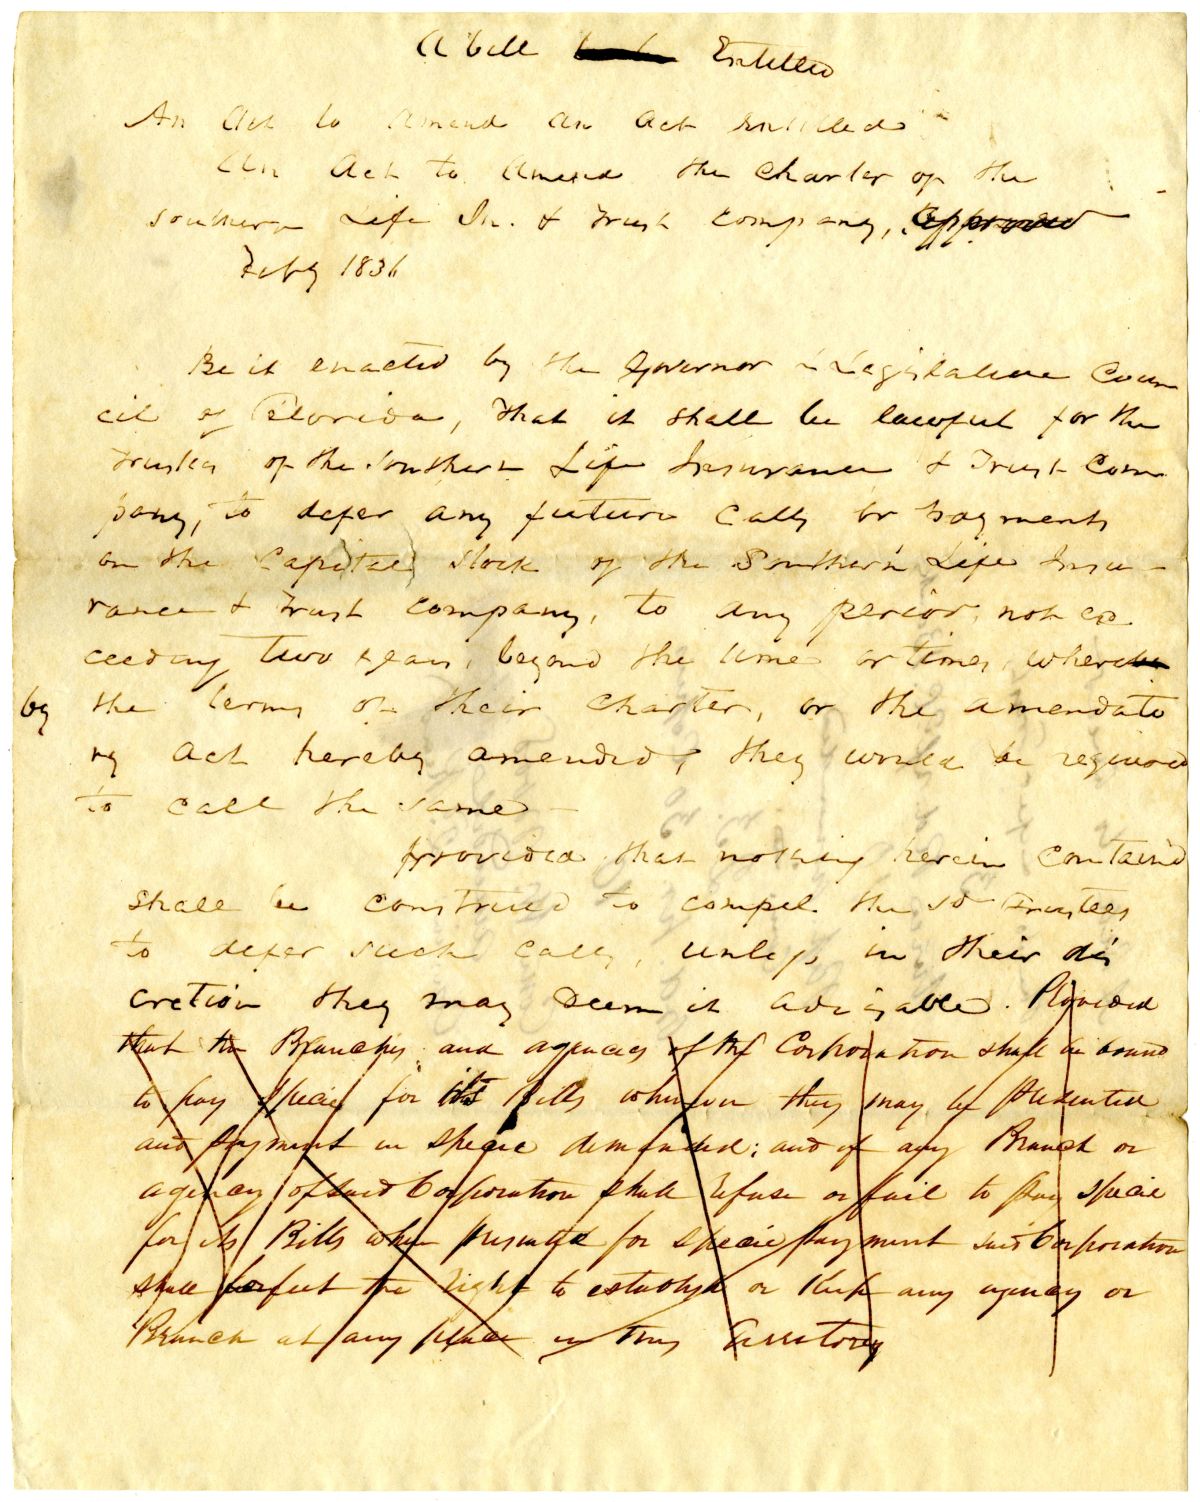 A bill Entitled
An Act to Amend an Act entitled
An Act to Amend the Charter of the
Southern Life In. & Trust Company, approved
Feby 1836
Be it enacted by the Governor & Legislative Coun
cil of Florida, That it shall be lawful for the
Trustees of the Southern Life Insurance & Trust Com
pany, to defer any future calls or payments
on the Capital Stock of the Southern Life Insu-
rance & Trust Company, to any period, not ex
ceeding Two years, beyond the time or times, where
by the terms of their Charter, or the amendato
ry Act hereby amended, they would be required
to call the same -
provided that nothing herein contain'd
shall be construed to compel the sd Trustees
to defer such calls, unless in their dis
cretion they may deem it adviseable. Provided
that the Branches and agencies of the Corporation shall be bound
to pay specie for its Bills whenever they may be presented
and payment in specie demanded; and if any Branch or
agency of said Corporation shall refuse or fail to pay specie
for its Bills when presented for specie payment said Corporation
shall forfeit the right to establish or keep any agency or
Branch at any place in this Territory